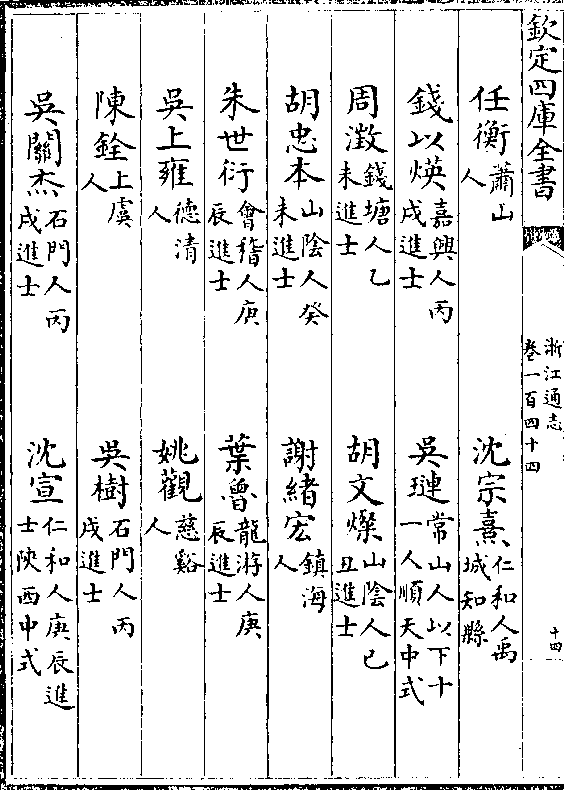 欽定四庫全書
浙江通志
卷一百四十四
十四
任衡蕭山人
沈宗熹仁和人禹城知縣
錢以煐嘉興人丙戌進士
吳璉常山人以下十一人順天中式
周澂錢塘人乙未進士
胡文燦山陰人己丑進士
胡忠本山陰人癸未進士
謝緒宏鎮海人
朱世衍會稽人庚辰進士
葉魯龍游人庚辰進士
吳上雍德清人
姚觀慈谿人
陳銓上虞人
吳樹石門人丙戌進士
吳關杰石門人丙戌進士
沈宣仁和人庚辰進士陝西中式